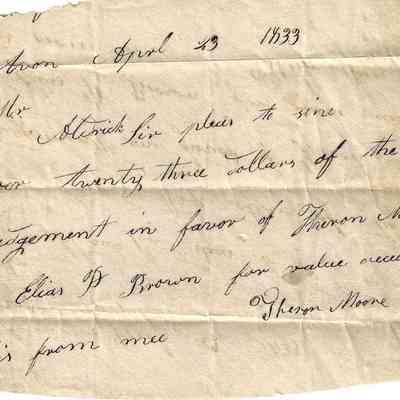 Avon April 23 1833
Mr Atwick Sir pleas to sine
over twenty three dollars of the
judgement in favor of Theron M
Elias P Brown for value recei
Theron Moore
is from mee